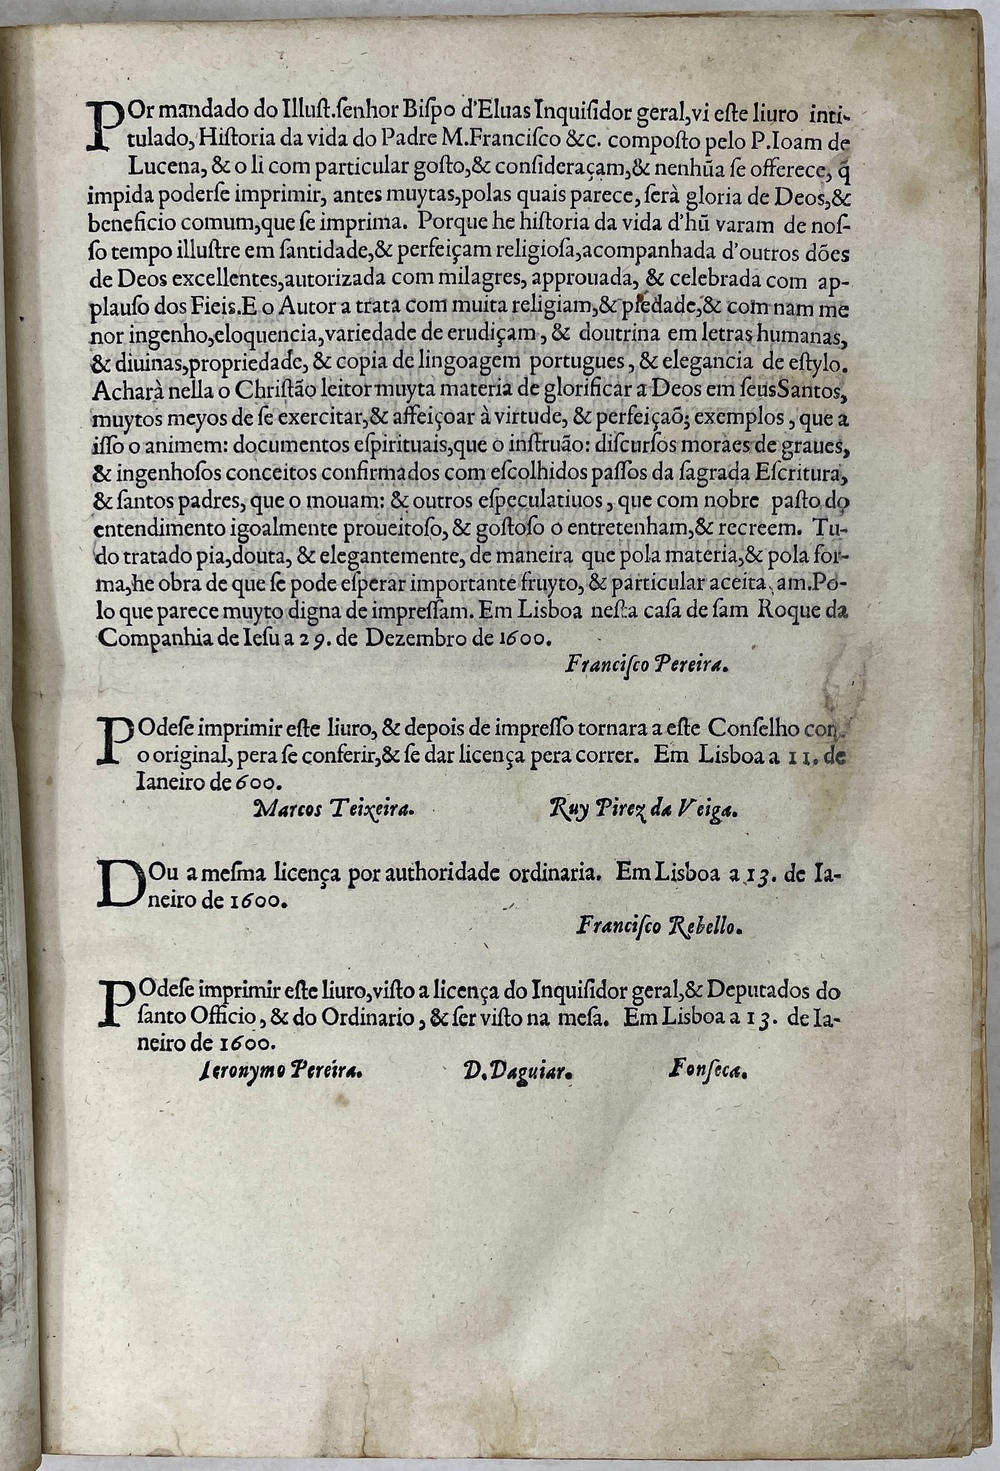 POr mandado do Illuſt.ſenhor Biſpo d'Eluas Inquiſidor geral,vi eſte liuro inti-
tulado, Hiſtoria da vida do Padre M.Franciſco &c. compoſto pelo P.Ioam de
Lucena, & o li com particular goſto,& conſideraçam,& nenhũa ſe offerece, q̃
impida poderſe imprimir, antes muytas,polas quais parece, ſerà gloria de Deos,&
beneficio comum,que ſe imprima. Porque he hiſtoria da vida d'hũ varam de noſ-
ſo tempo illuſtre em ſantidade,& perfeiçam religioſa,acompanhada d'outros dões
de Deos excellentes,autorizada com milagres, approuada, & celebrada com ap-
plauſo dos Fieis.E o Autor a trata com muita religiam,& piedade,& com nam me
nor ingenho,eloquencia,variedade de erudiçam, & doutrina em letras humanas,
& diuinas,propriedade, & copia de lingoagem portugues, & elegancia de eſtylo.
Acharà nella o Chriſtão leitor muyta materia de glorificar a Deos em ſeus Santos,
muytos meyos de ſe exercitar,& affeiçoar à virtude, & perfeiçaõ; exemplos, que a
iſſo o animem: documentos eſpirituais,que o inſtruão: diſcurſos moràes de graues,
& ingenhoſos conceitos confirmados com eſcolhidos paſſos da ſagrada Eſcritura,
& ſantos padres, que o mouam: & outros eſpeculatiuos, que com nobre paſto do
entendimento igoalmente proueitoſo, & goſtoſo o entretenham,& recreem. Tu-
do tratado pia,douta, & elegantemente, de maneira que pola materia,& pola for-
ma,he obra de que ſe pode eſperar importante fruyto, & particular aceitaçam.Po-
lo que parece muyto digna de impreſſam. Em Lisboa neſta caſa de ſam Roque da
Companhia de Ieſu a 29. de Dezembro de 1600.
Franciſco Pereira.
POdeſe imprimir eſte liuro, & depois de impreſſo tornara a eſte Conſelho com
o original, pera ſe conferir,& ſe dar licença pera correr. Em Lisboa a 11. de
Ianeiro de 600.
Marcos Teixeira. Ruy Pirez da Veiga.
DOu a meſma licença por authoridade ordinaria. Em Lisboa a 13. de Ia-
neiro de 1600.
Franciſco Rebello.
POdeſe imprimir eſte liuro,viſto a licença do Inquiſidor geral,& Deputados do
ſanto Officio, & do Ordinario, & ſer viſto na meſa. Em Lisboa a 13. de Ia-
neiro de 1600.
Ieronymo Pereira. D.Daguiar. Fonſeca.